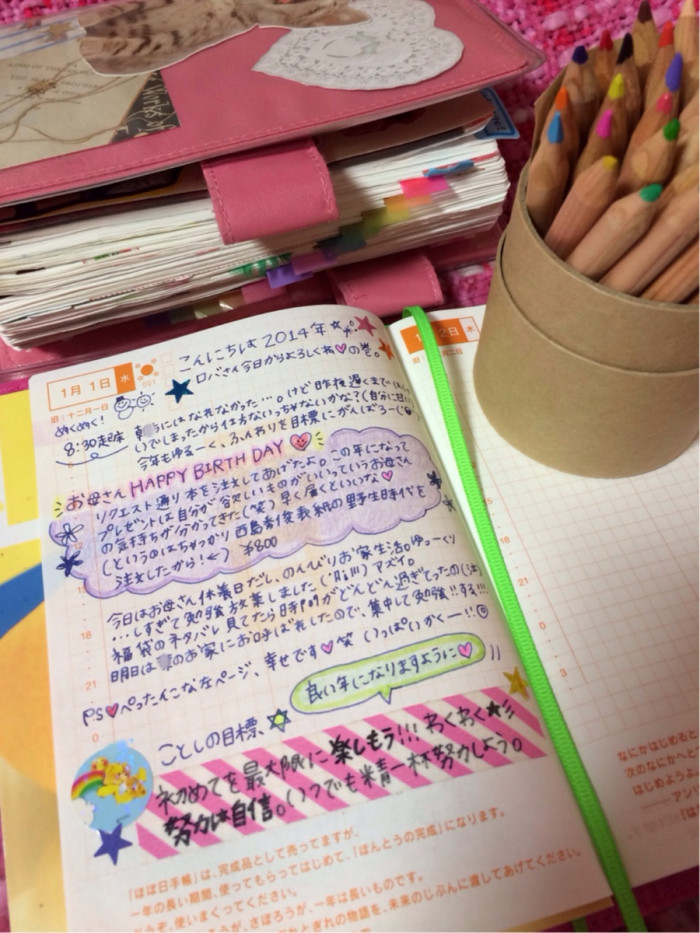 こんにちは 2014年
ロバさん今日からよろしくね♡の巻。
1月 1日 水
旧:十二月一日
001
ぬくぬく!
8:30起床
にはなれなかった…。けど昨夜遅くまで
いでしまったから仕方ないっちゃないかな?(自分に甘い
今年もゆるーく、ふんわりを目標にがんばろーじ
お母さん HAPPY BIRTH DAY
リクエスト通り本を注文してあげたよ。この年になって
プレゼントは自分が欲しいものがいいっていうお母さん
の気持ちが分かってきた(笑)早く届くといいな♡
(というのはちゃっかり西島秀俊表紙の野生時代を
注文したから!←) ¥800
今日はお母さん休養日だし、のんびりお家生活。ゆっくり
…しすぎて勉強放棄しました アズイ。
福袋のネタバレ見てたら時間がどんどん過ぎてったの(泣)
明日は のお家におよばれしたので、集中して勉強!!する!!!
PS♡ぺったんこなページ、幸せです♡笑 いっぱいかくー!!
良い年になりますように♡
ことしの目標、
初めてを最大限に楽しもう!!! わくわく★
努力は自信。いつでも精一杯努力しよう。
12
18
21
0
「ほぼ日手帳」は、完成品として売ってますが、
一年の長い期間、使ってもらってはじめて、「ほんとうの完成」になります。
どうぞ、使いまくってください。
さぼろうが、一年は長いものです。
とぎれの物語を、未来のじぶんに渡してあげてください。
2日 木
3
なにかはじめると
次のなにかへと
はじめようよ
アン